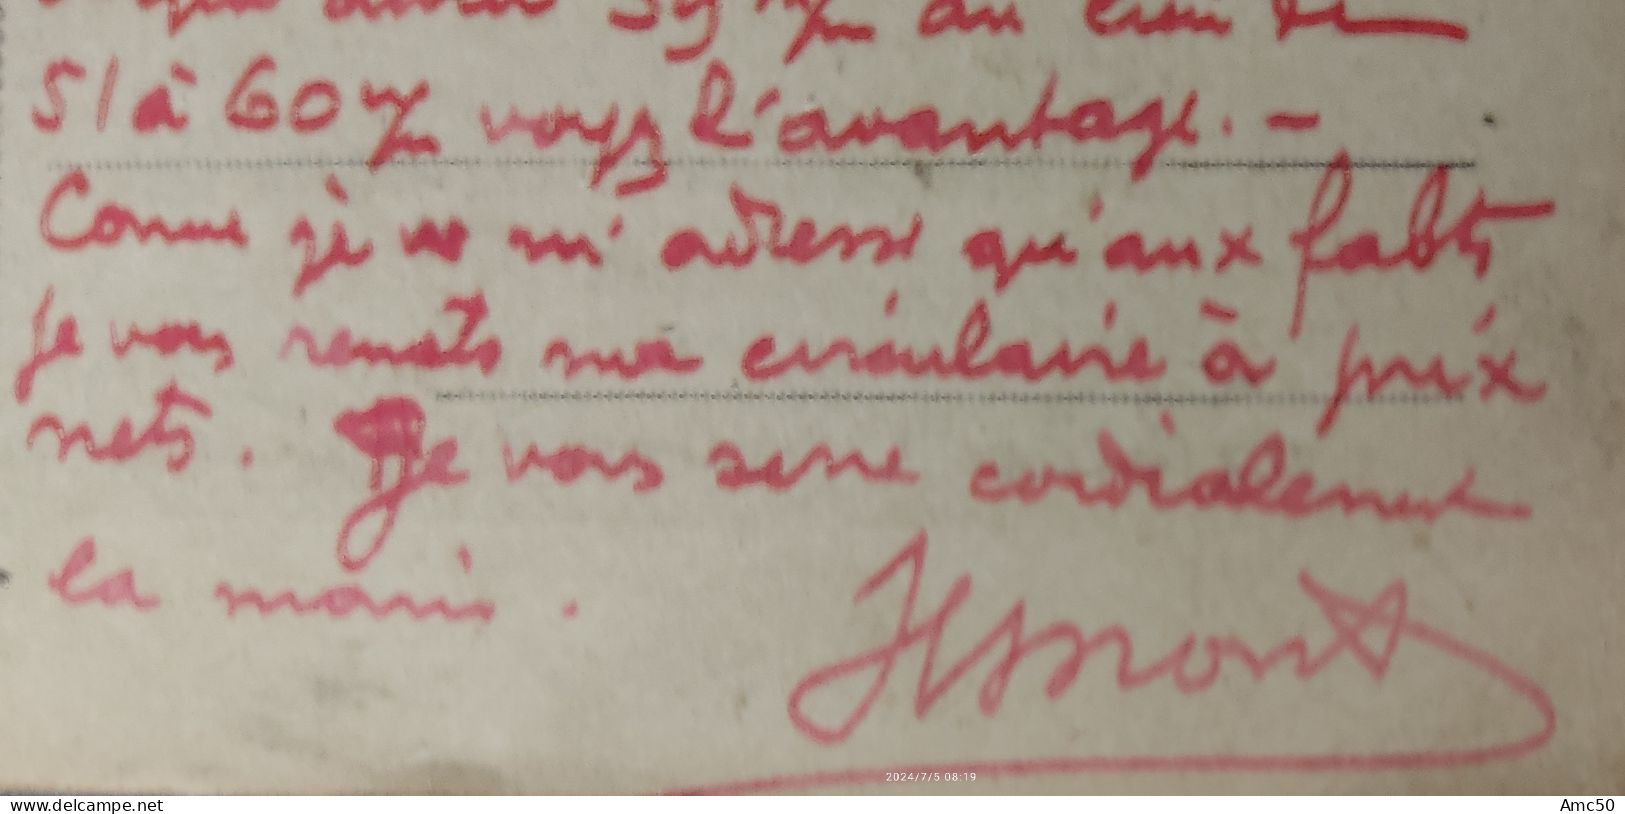 59 m/m au lieu de
51 à 60 m/m voyez l'avantage. –
Comme je ne m'adresse qu'aux fabts
je vous remets ma circulaire à prix
nets. Je vous serre cordialement
la main.
2024/7/5 08:19
www.delcampe.net
Amc50